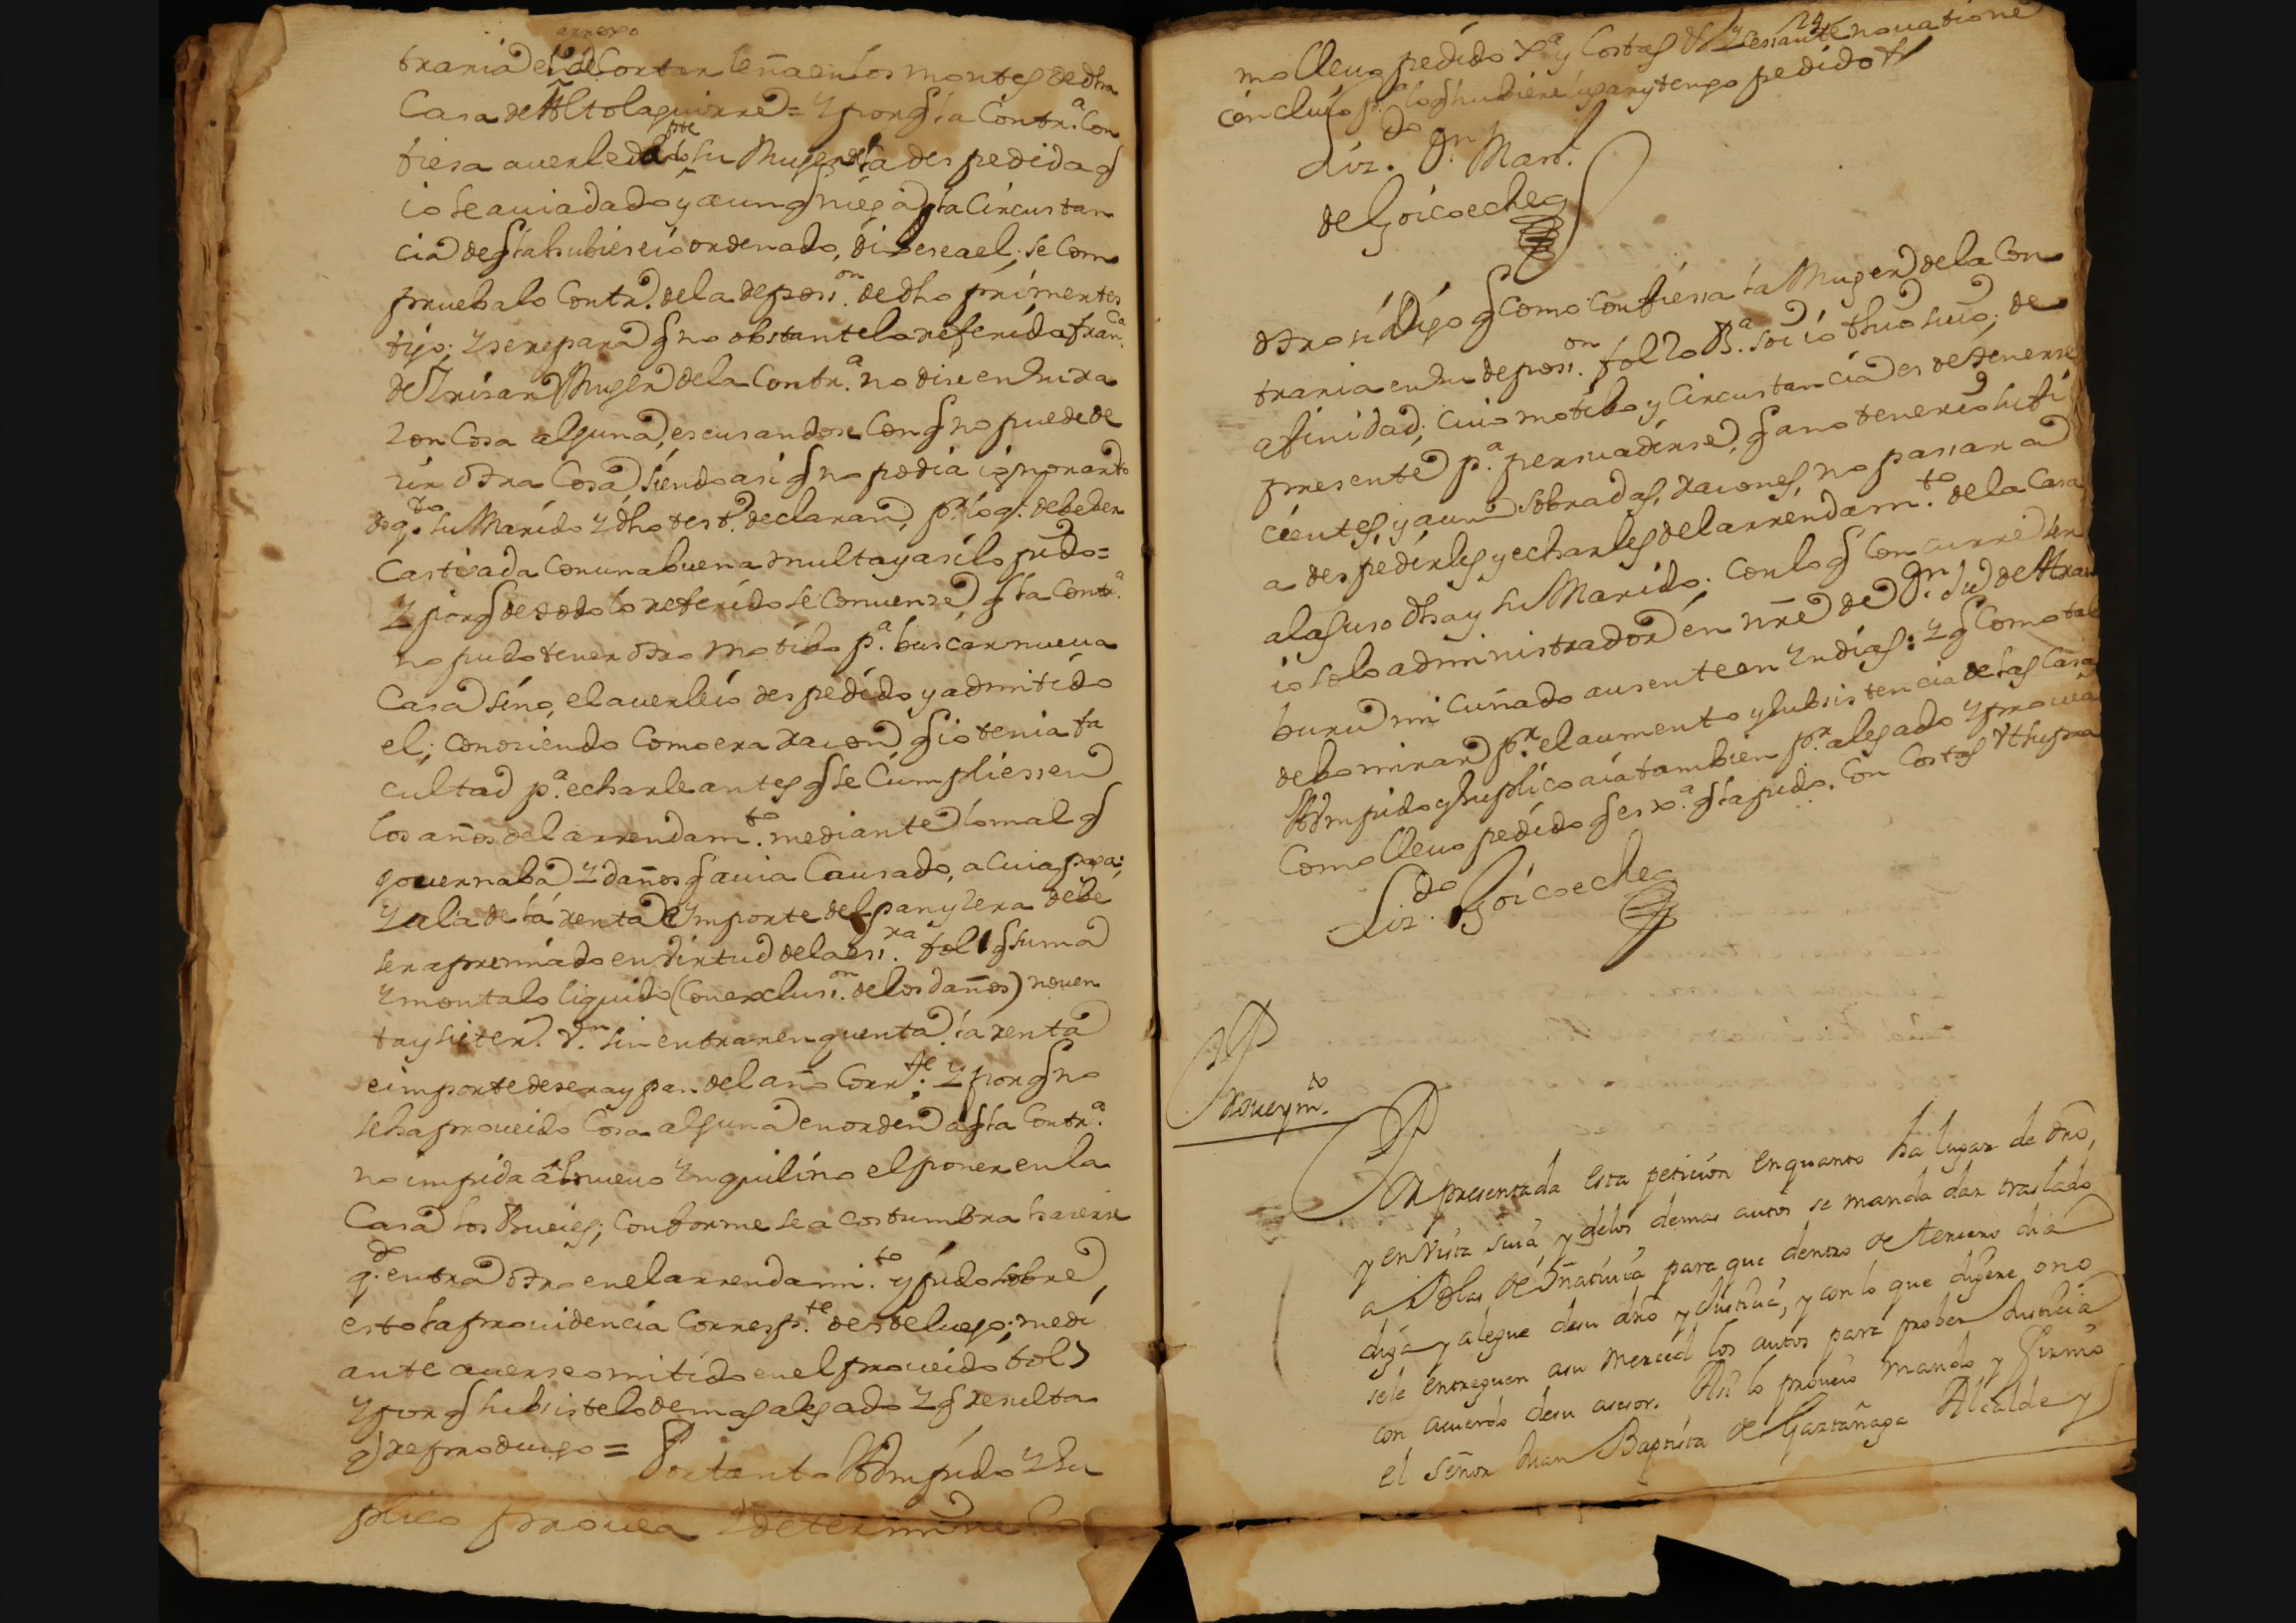 arrojo
traria el de Cortar leña en los montes de dha
Casa de Altolaguirre = Y porq̃ la Contr.ª Con
fiesa averle dado pte su Muger la despedida q̃
io le avia dado, y aunq̃ niega la Circustan
cia de q̃ la hubiese io ordenado, diese a el; se Com
prueba lo Contr.º de la depossi.on de dho primer tes
tijo; Y se repara q̃ no obstante lo referido fran.ca
de Yrisar Muger de la Contr.ª no dise en su ra
zon Cosa alguna, escusandose Con q̃ no puede de
zir otra Cosa siendo asi q̃ no podia ignorar to
do q.to su Marido Y dho test.º declaran, p.r lo q. debe ser
Castigada Con una buena multa y asi lo pido =
Y porq̃ de todo lo referido se Convenze q̃ la Contr.ª
no pudo tener otro motibo p.ª buscar nueva
Casa sino, el averle io despedido, y admitido
el; Conosiendo Como era razon, q̃ io tenia fa
cultad p.ª echarle antes q̃ se Cumpliessen
los años del arrendam.to mediante lo mal q̃
governaba Y daños q̃ avia Causado, a Cuia paga;
Y a la de la renta e Ymporte del pan y zera debe
ser apremiado en Virtud de la ess.ra fol 1 q̃ suma
Y monta lo liquido (Con exclusi.on de los daños) noven
ta y siete r.s V.n sin entrar en quenta la renta
e importe de sera y pan del año Corr.te: Y porq̃ no
se ha proveido Cosa alguna en orden a q̃ la Contr.ª
no impida al nuevo Ynquilino el poner en la
Casa los Bueies; Conforme se acostumbra haserse
q.do entra otro en el arrendami.to y pido sobre
esto la providencia Corresp.te desde luego: medi
ante averse omitido en el proveido fol 7
Y porq̃ subsiste lo demas alegado Y q̃ resulta
q̃ reprodusgo = Por tanto A Vm pido Y su
plico provea Y determine Co
24
mo llevo pedido X.ª y Costas &.ª Y cessante novatione
Concluio p.ª lo q̃ hubiere lugar y tengo pedido &.ª
Liz.do D.n Man.l
de Goicoechea
Otrosi Digo q̃ como Confiessa la Muger de la Con
traria en su deposi.on fol 20 B.ta soi io thio suio, de
afinidad; Cuio motibo y Circustancia es de tenerse
presente p.ª persuadirse, q̃ a no tener io sufi
cientes, y aun sobradas, razones, no passara
a despedirles y echarles del arrendam.to de la Casa
a la suso dha y su Marido; Con lo q̃ Concurre ser
io solo administrador en nrẽ de D.n Ju.º de Aram
buru mi Cuñado ausente en Yndias: Y q̃ Como tal
debo mirar p.r el aumento y subsistencia de las Casas
A Vm pido y suplico aia tambien p.r alegado Y provea
Como llevo pedido q̃ es X.ª q̃ la pido. Con Costas Ut supra
Liz.do Goicoechea
Proveym.to
Por presentada esta peticion en quanto ha lugar de dro,
y en vista suia y delos demas autos se manda dar traslado
a Blas de Oñativia para que dentro de tercero dia
diga y alegue desu dro y Justicia, y con lo que dijere o no
sele entreguen asu merced los autos para prober Justicia
con acuerdo desu asesor. Asi lo proveio mando y firmo
el señor Juan Baptista de Gaztañaga Alcalde y